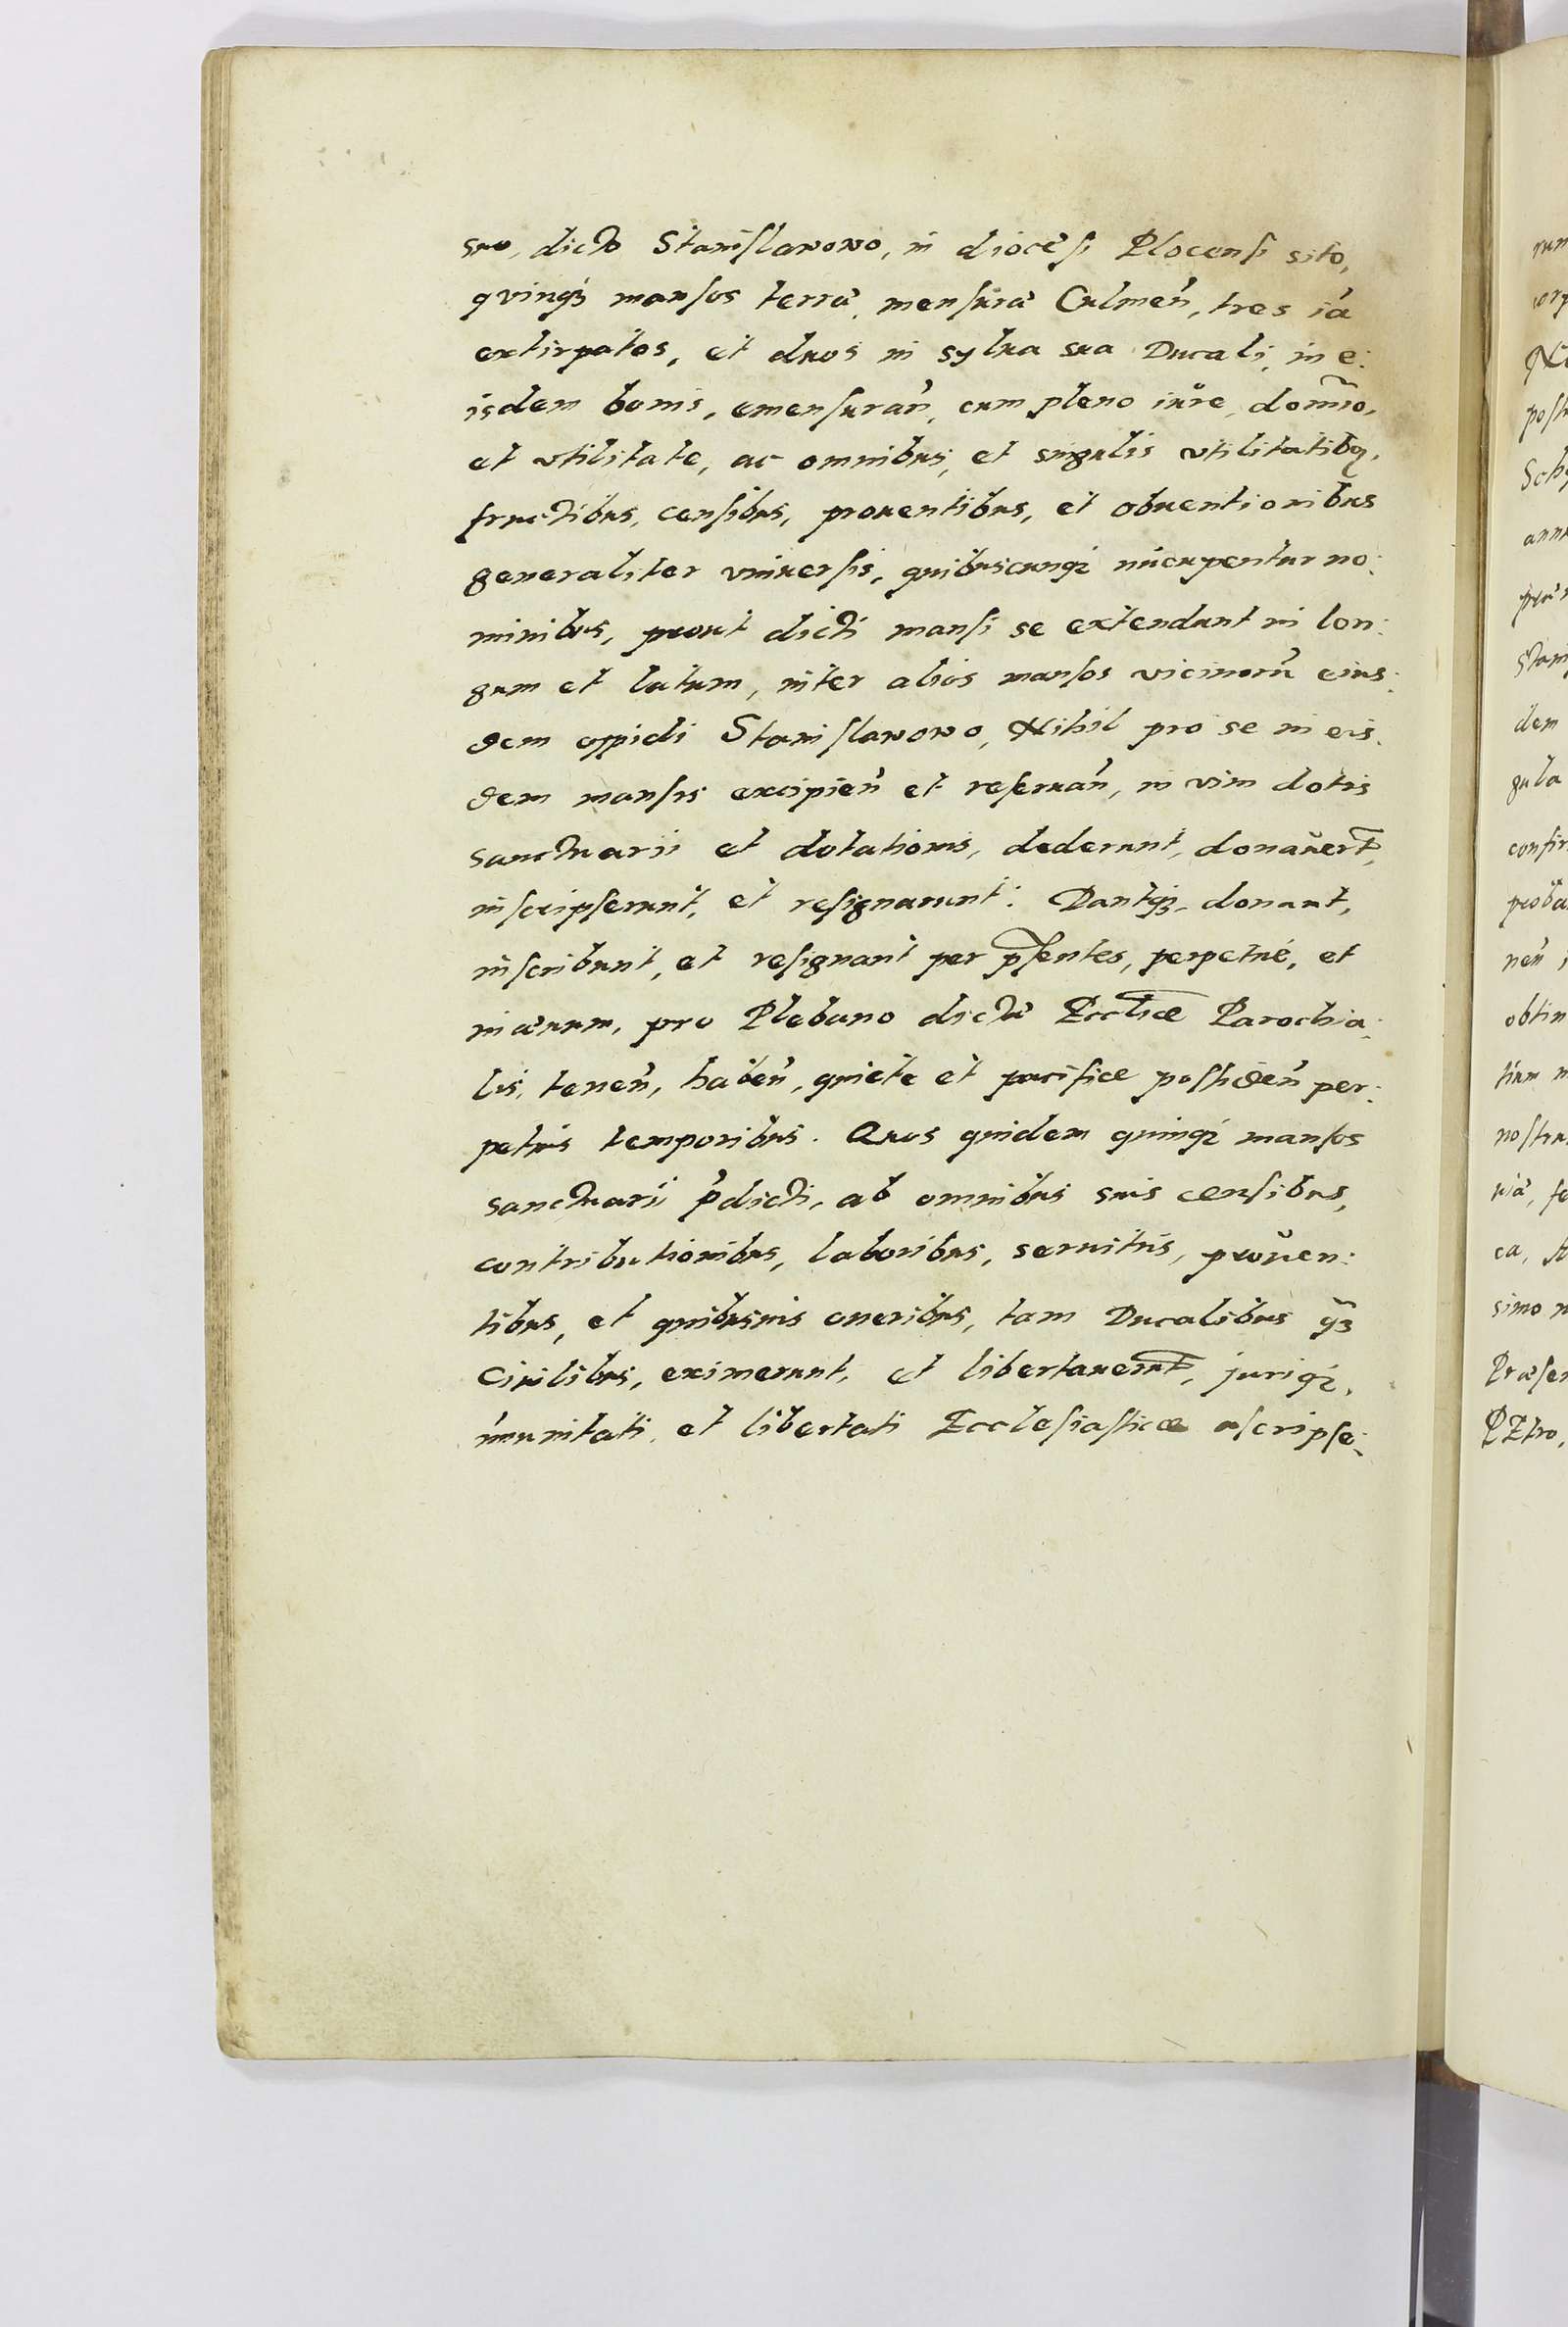 suo, dicto Stanislawowo, in diocesi Plocensi sito,
quinqꝫ mansos terræ, mensuræ Culmeñ, tres iã
extirpatos, et duos in sylua sua Ducali, in e:
isdem bonis, emensurañ, cum pleno iure, domĩo,
et vtilitate, ac omnibus, et singulis vtilitatibꝰ,
fructibus, censibus, prouentibus, et obuentionibus
generaliter vniuersis, quibuscunqꝫ nũcupentur no:
minibus, prout dicti mansi se extendunt in lon:
gum et latum, inter alios mansos vicinorũ eius:
dem oppidi Stanislawowo, Nihil pro se in eis:
dem mansis excipieñ et reseruañ, in vim dotis
sanctuarii et dotationis, dederunt, donauer̃t,
inscripserunt, et resignarunt: Dantqꝫ, donant,
inscribunt, et resignant per p̃sentes, perpetué, et
in æuum, pro Plebano dictæ Eccl̃iæ Parochia:
lis, teneñ, habeñ, quiete et pacifice possideñ per:
petuis temporibus. Quos quidem quinqꝫ mansos
sanctuarii p̃dicti, ab omnibus suis censibus,
contributionibus, laboribus, seruitiis, prouen:
tibus, et quibusuis oneribus, tam Ducalibus qꝫ̃
Ciuilibus, exemerunt, et libertauerũt, juriqꝫ,
im̃unitati, et libertati Ecclesiasticæ ascripse: